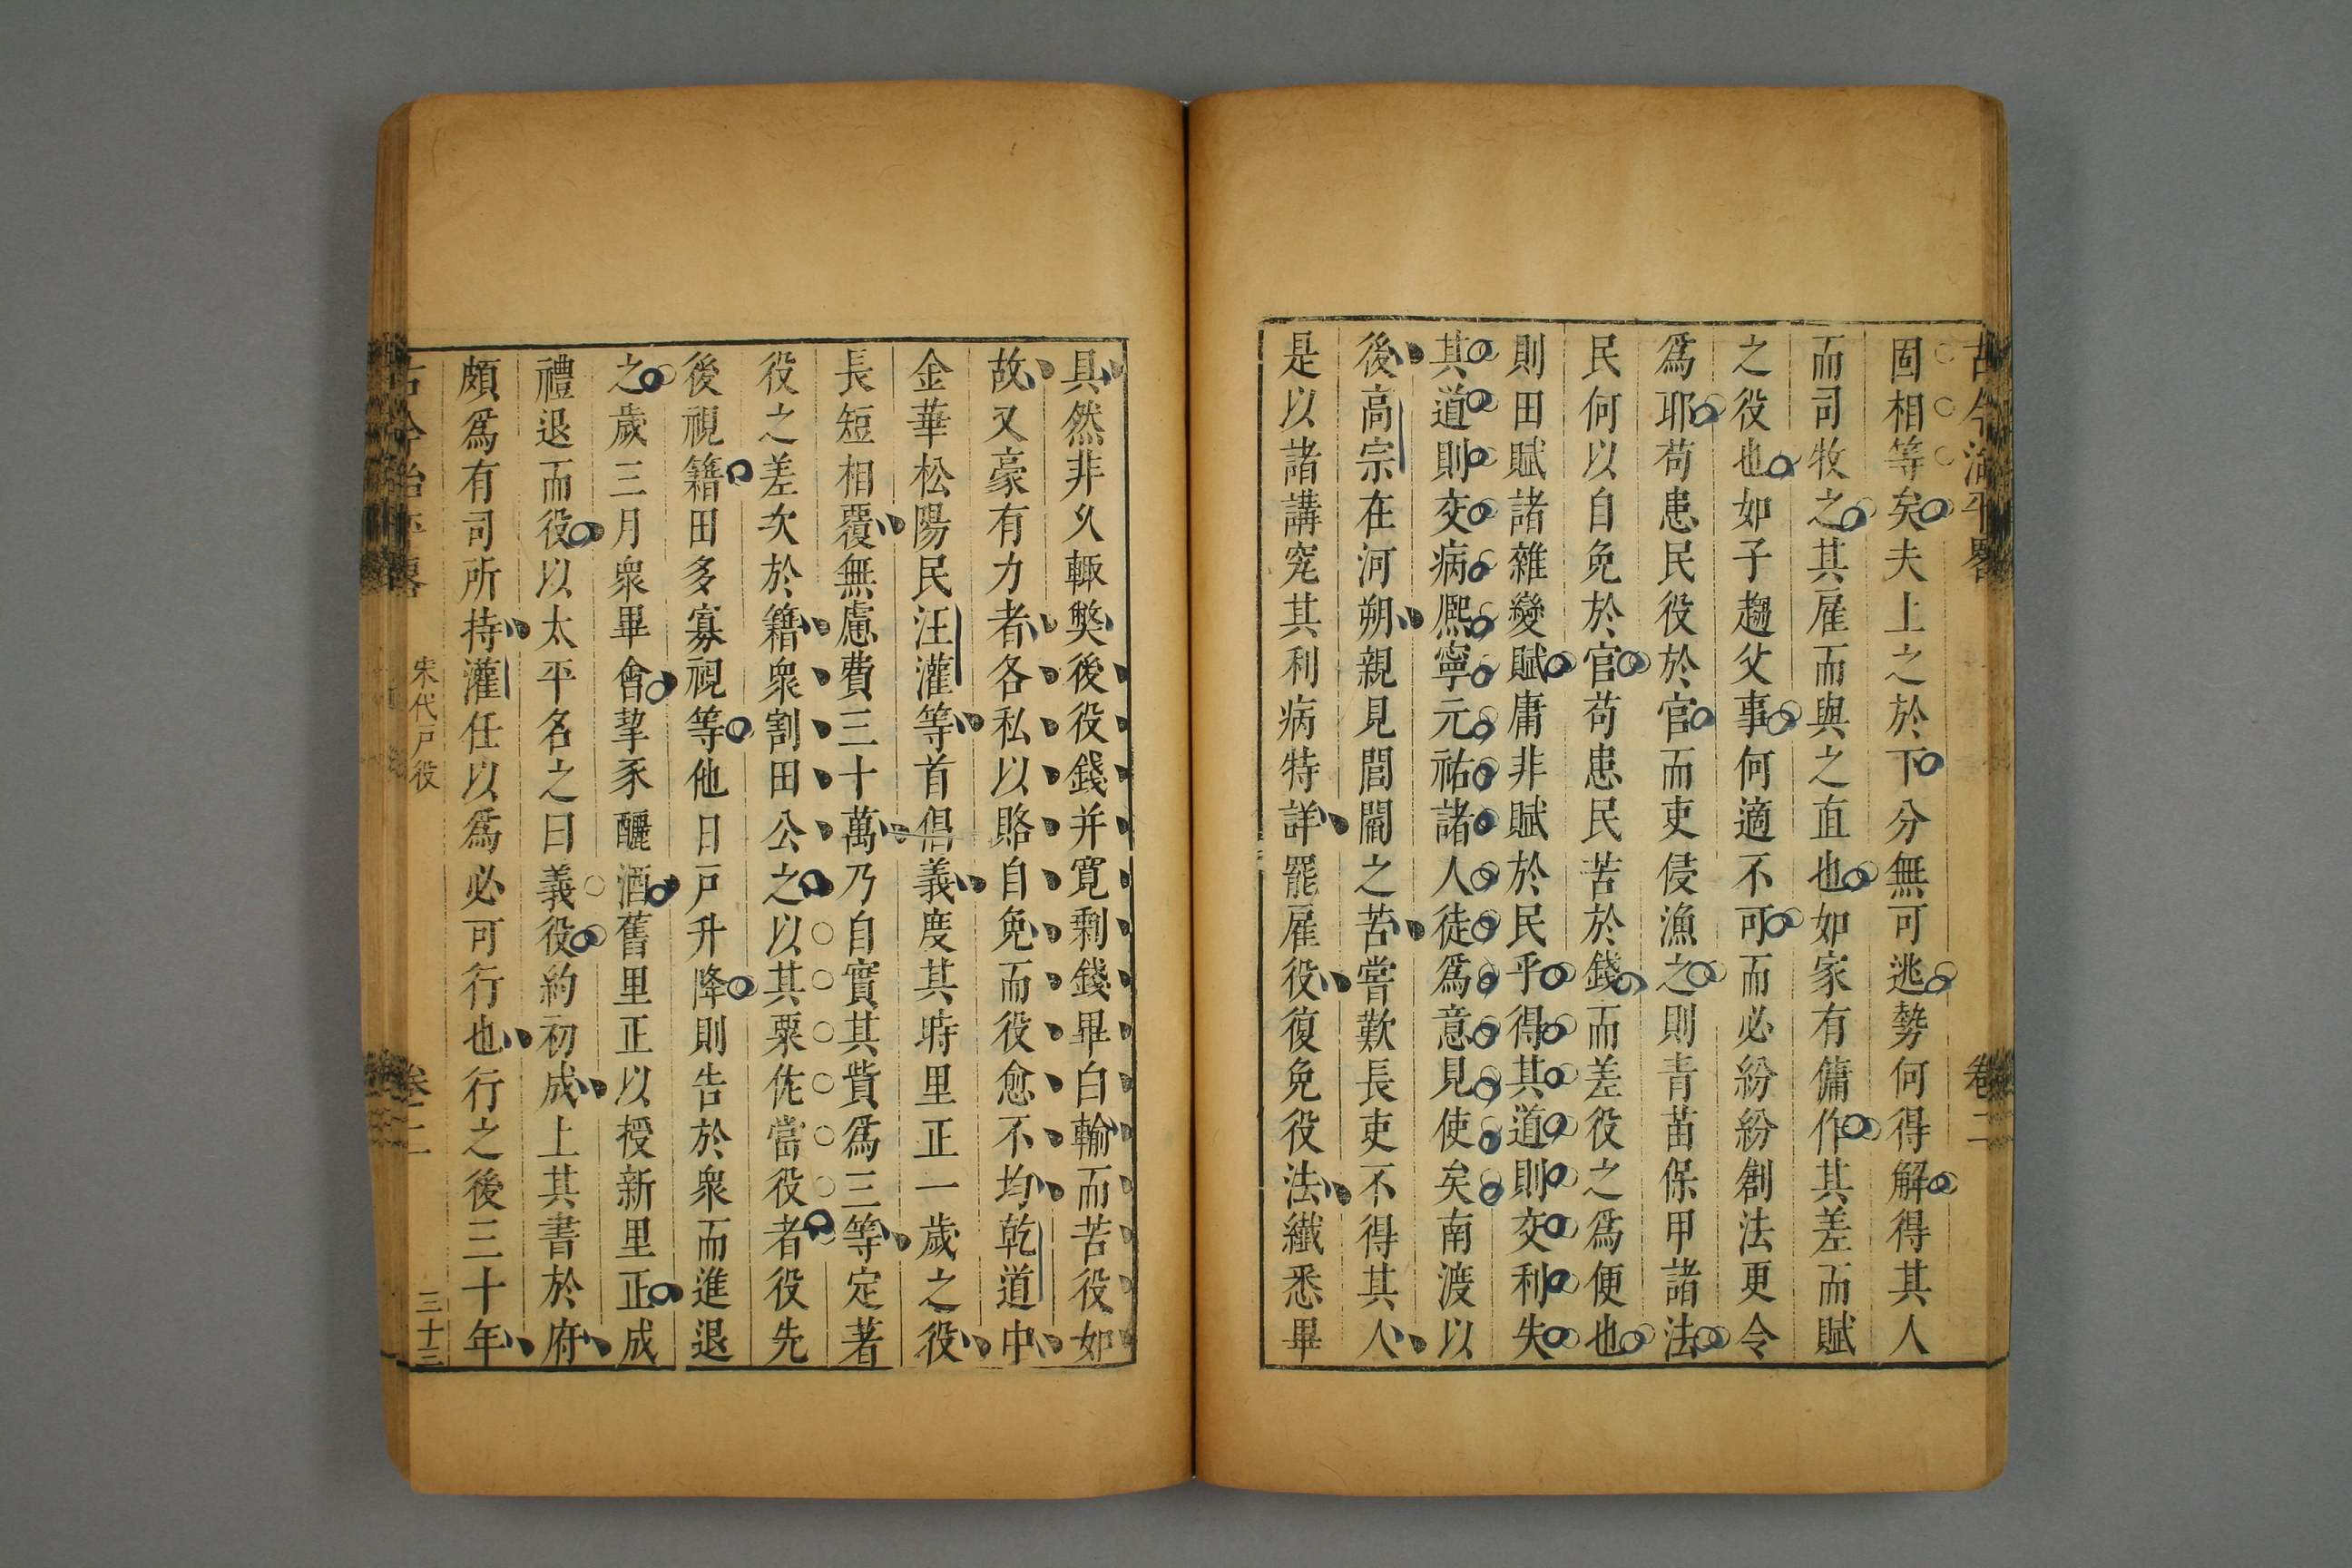 古今治平畧
卷二
固相等矣夫上之於下分無可逃勢何得解得其人
而司牧之其雇而與之直也如家有傭作其差而賦
之役也如子趨父事何適不可而必紛紛創法更令
爲耶苟患民役於官而吏侵漁之則青苗保甲諸法
民何以自免於官苟患民苦於錢而差役之爲便也
則田賦諸雜變賦庸非賦於民乎得其道則交利失
其道則交病熈寧元祐諸人徒爲意見使矣南渡以
後高宗在河朔親見閭閻之苦嘗歎長吏不得其人
是以諸講究其利病特詳罷雇役復免役法纖悉畢
具然非久輒獘後役錢并寛剩錢畢白輸而苦役如
故又豪有力者各私以賂自免而役愈不均乾道中
金華松陽民汪灌等首倡義度其時里正一歲之役
長短相覆無慮費三十萬乃自實其貲爲三等定著
役之差次於籍衆割田公之以其粟佐當役者役先
後視籍田多寡視等他日戸升降則告於衆而進退
之歲三月衆畢會挈豕釃酒舊里正以授新里正成
禮退而役以太平名之曰義役約初成上其書於府
頗爲有司所持灌任以爲必可行也行之後三十年
古今治平畧
宋代戸役
卷二
三十三